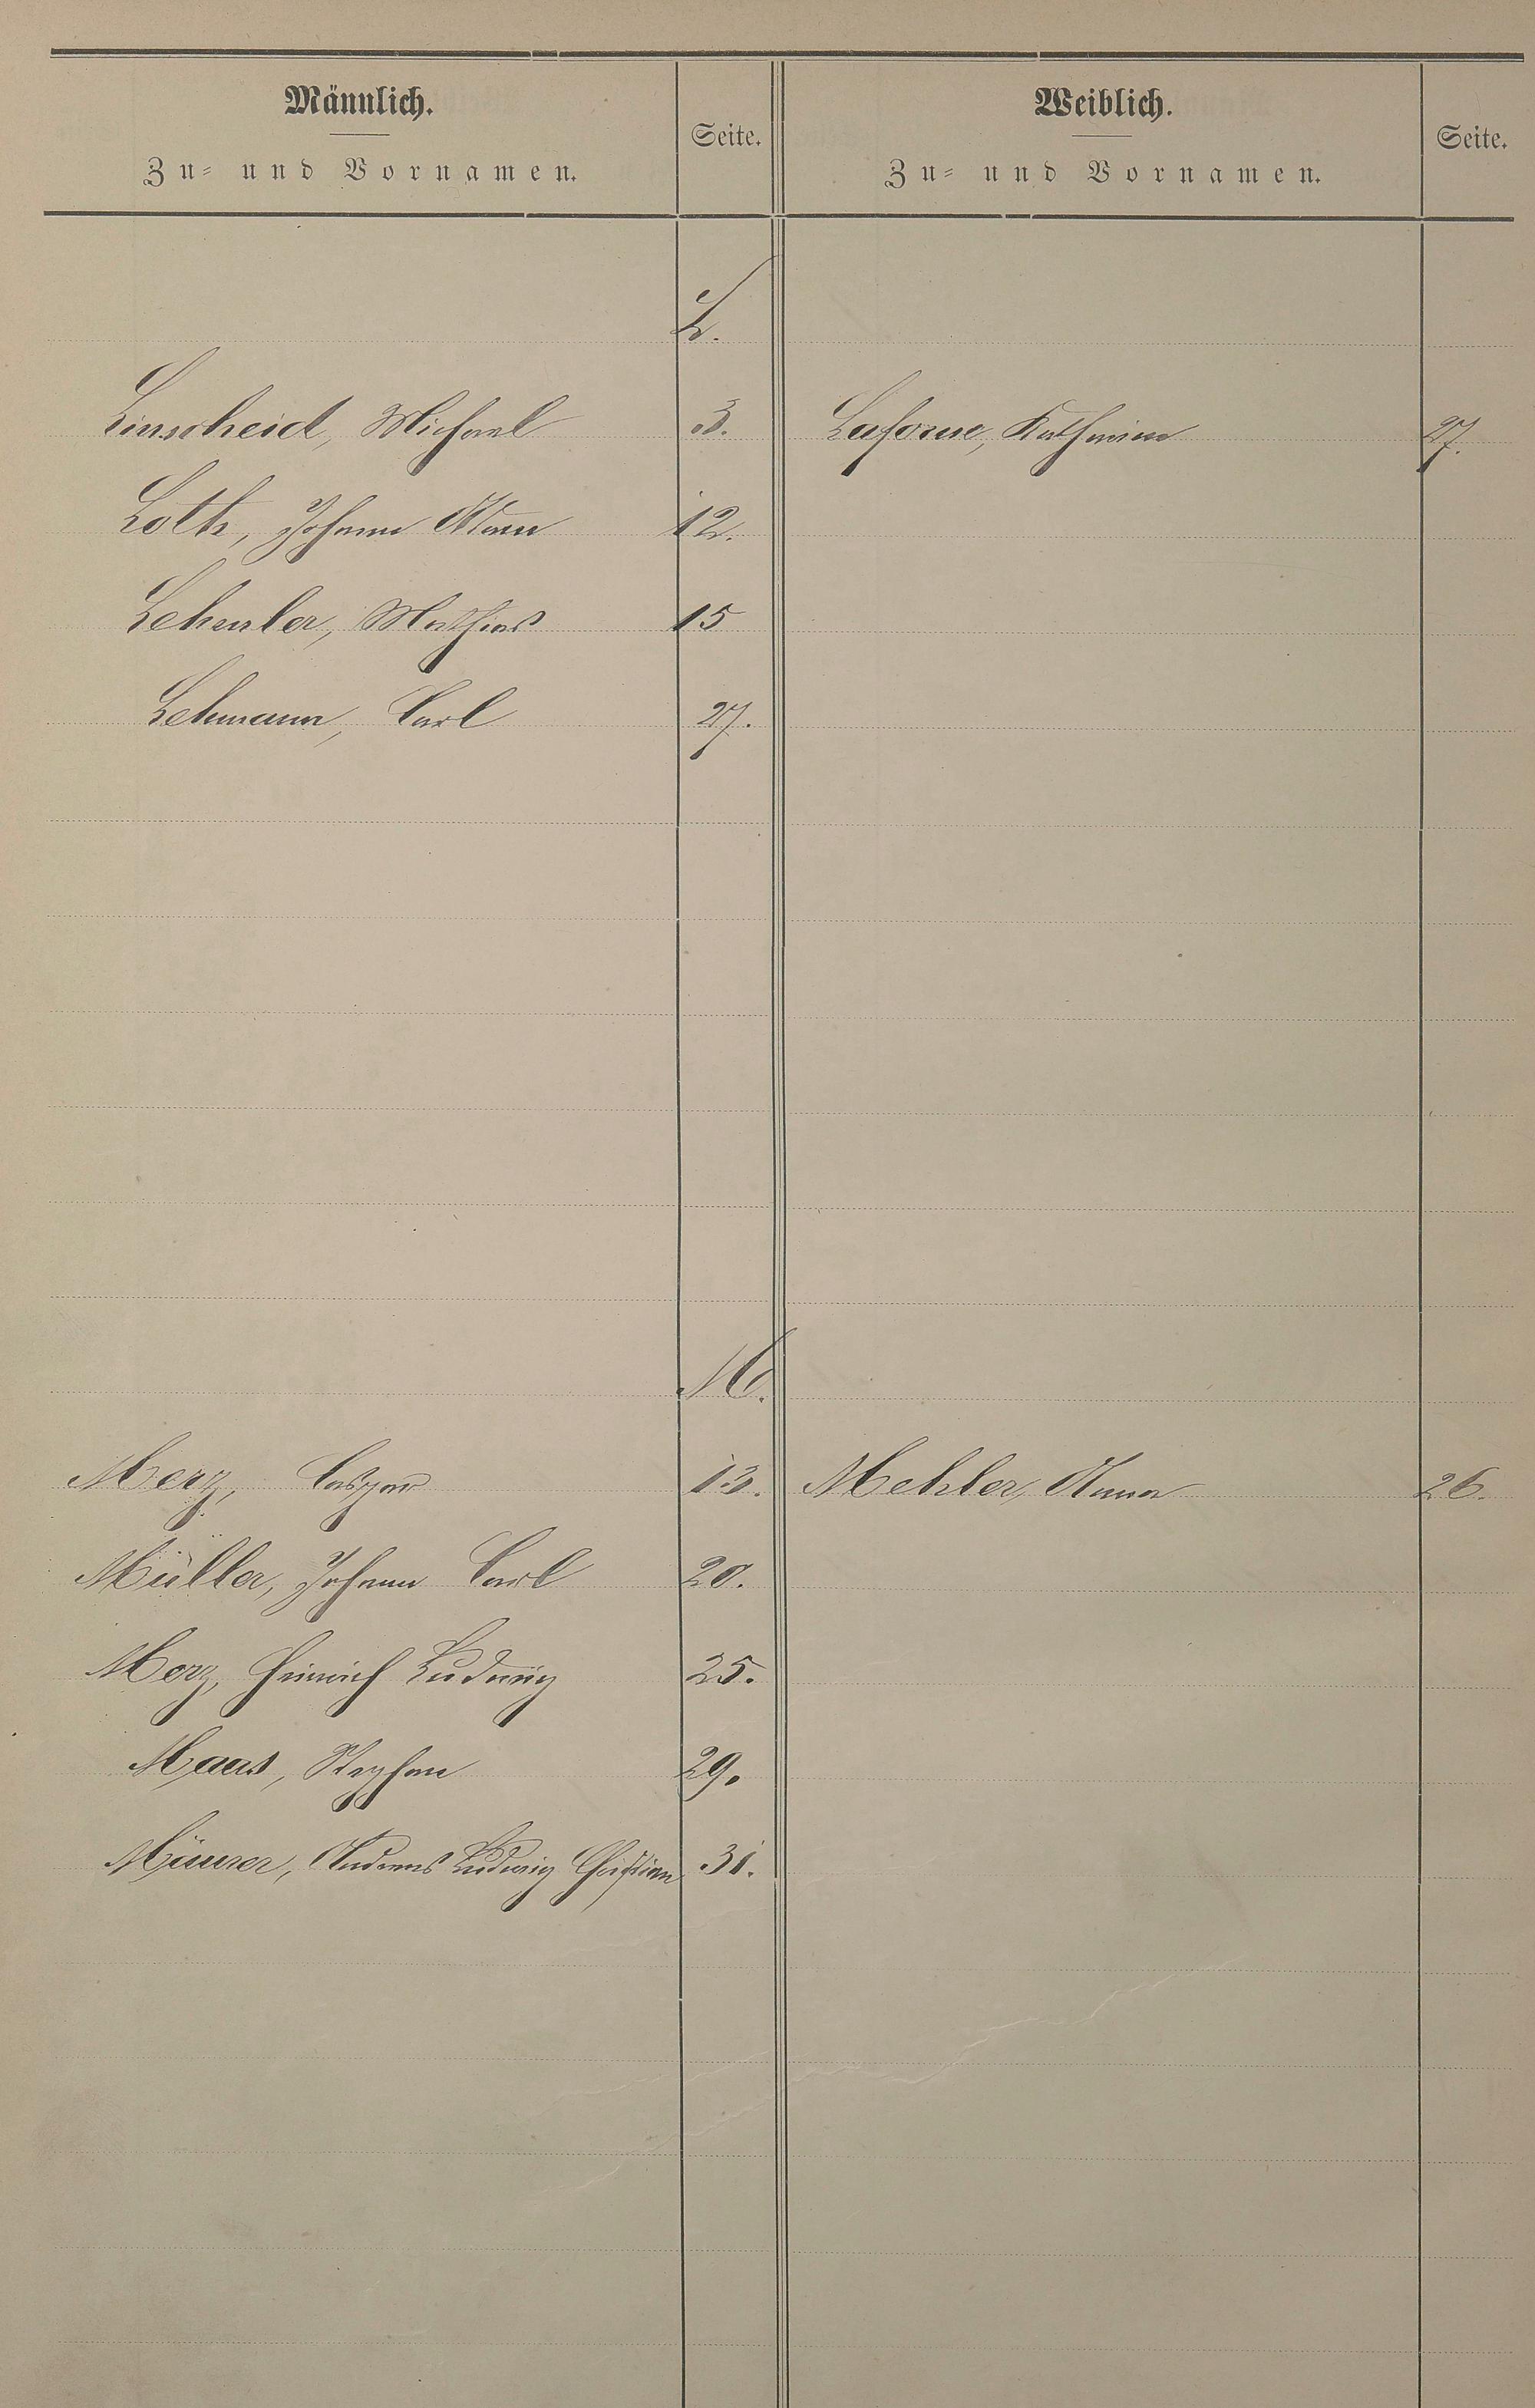 Männlich.
Zu- und Vornamen.
Seite.
Weiblich.
Zu- und Vornamen.
Seite.
L.
Linscheid, Michael 3. Laforne, Katharina 27.
Loth, Johann Adam 12.
Mathias 15
Lehmann, Carl 27.
M.
Merz, Caspar 13. Mehler, Anna 26.
Müller, Johann Carl 20.
Merz, Heinrich Ludwig 25.
Maas, Stephan 29.
Andreas Ludwig Christian 31.